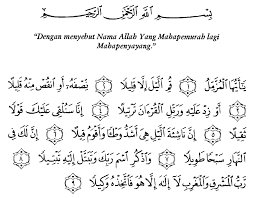 بِسْمِ اللَّهِ الرَّحْمَٰنِ الرَّحِيمِ
“Dengan menyebut Nama Allah Yang Mahapemurah lagi
Mahapenyayang.”
يَٰٓأَيُّهَا الْمُزَّمِّلُ ۝١ قُمِ الَّيْلَ إِلَّا قَلِيلًا ۝٢ نِّصْفَهُۥٓ أَوِ انقُصْ مِنْهُ قَلِيلًا
۝٣ أَوْ زِدْ عَلَيْهِ وَرَتِّلِ الْقُرْءَانَ تَرْتِيلًا ۝٤ إِنَّا سَنُلْقِى عَلَيْكَ قَوْلًا
ثَقِيلًا ۝٥ إِنَّ نَاشِئَةَ الَّيْلِ هِىَ أَشَدُّ وَطْـًٔا وَأَقْوَمُ قِيلًا ۝٦ إِنَّ لَكَ فِى
النَّهَارِ سَبْحًا طَوِيلًا ۝٧ وَاذْكُرِ اسْمَ رَبِّكَ وَتَبَتَّلْ إِلَيْهِ تَبْتِيلًا ۝٨
رَّبُّ الْمَشْرِقِ وَالْمَغْرِبِ لَآ إِلَٰهَ إِلَّا هُوَ فَاتَّخِذْهُ وَكِيلًا
۝٩